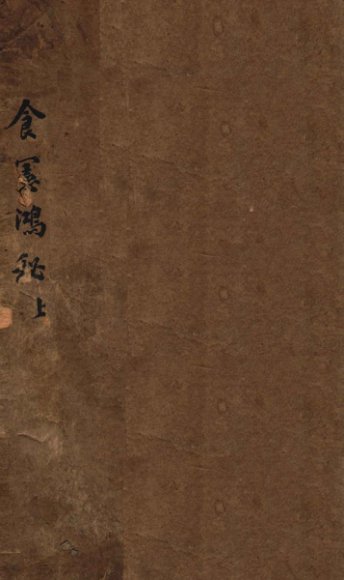 食憲鴻秘上